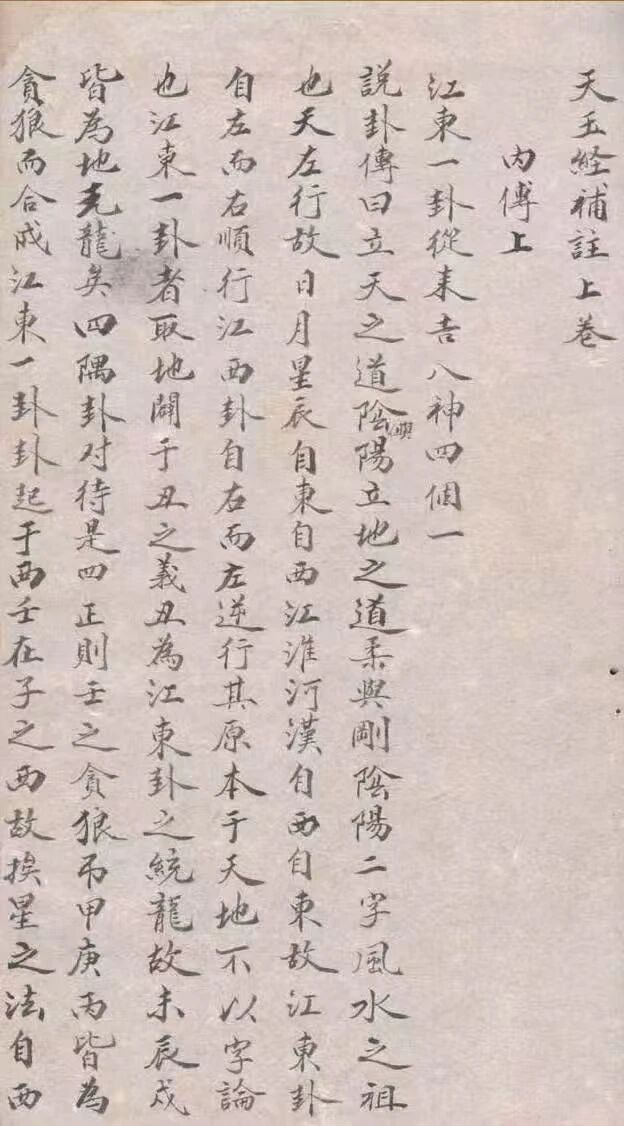 天玉経補註上卷
內傳上
江東一卦從来吉八神四個一
說卦傳曰立天之道陰與陽立地之道柔與剛陰陽二字風水之祖
也天左行故日月星辰自東自西江淮河漢自西自東故江東卦
自左而右順行江西卦自右而左逆行其原本于天地不以字論
也江東一卦者取地闢于丑之義丑為江東卦之統龍故未辰戍
皆為地元龍矣四隅卦对待是四正則壬之貪狼吊甲庚丙皆為
貪狼而合成江東一卦卦起于西壬在子之西故挨星之法自西